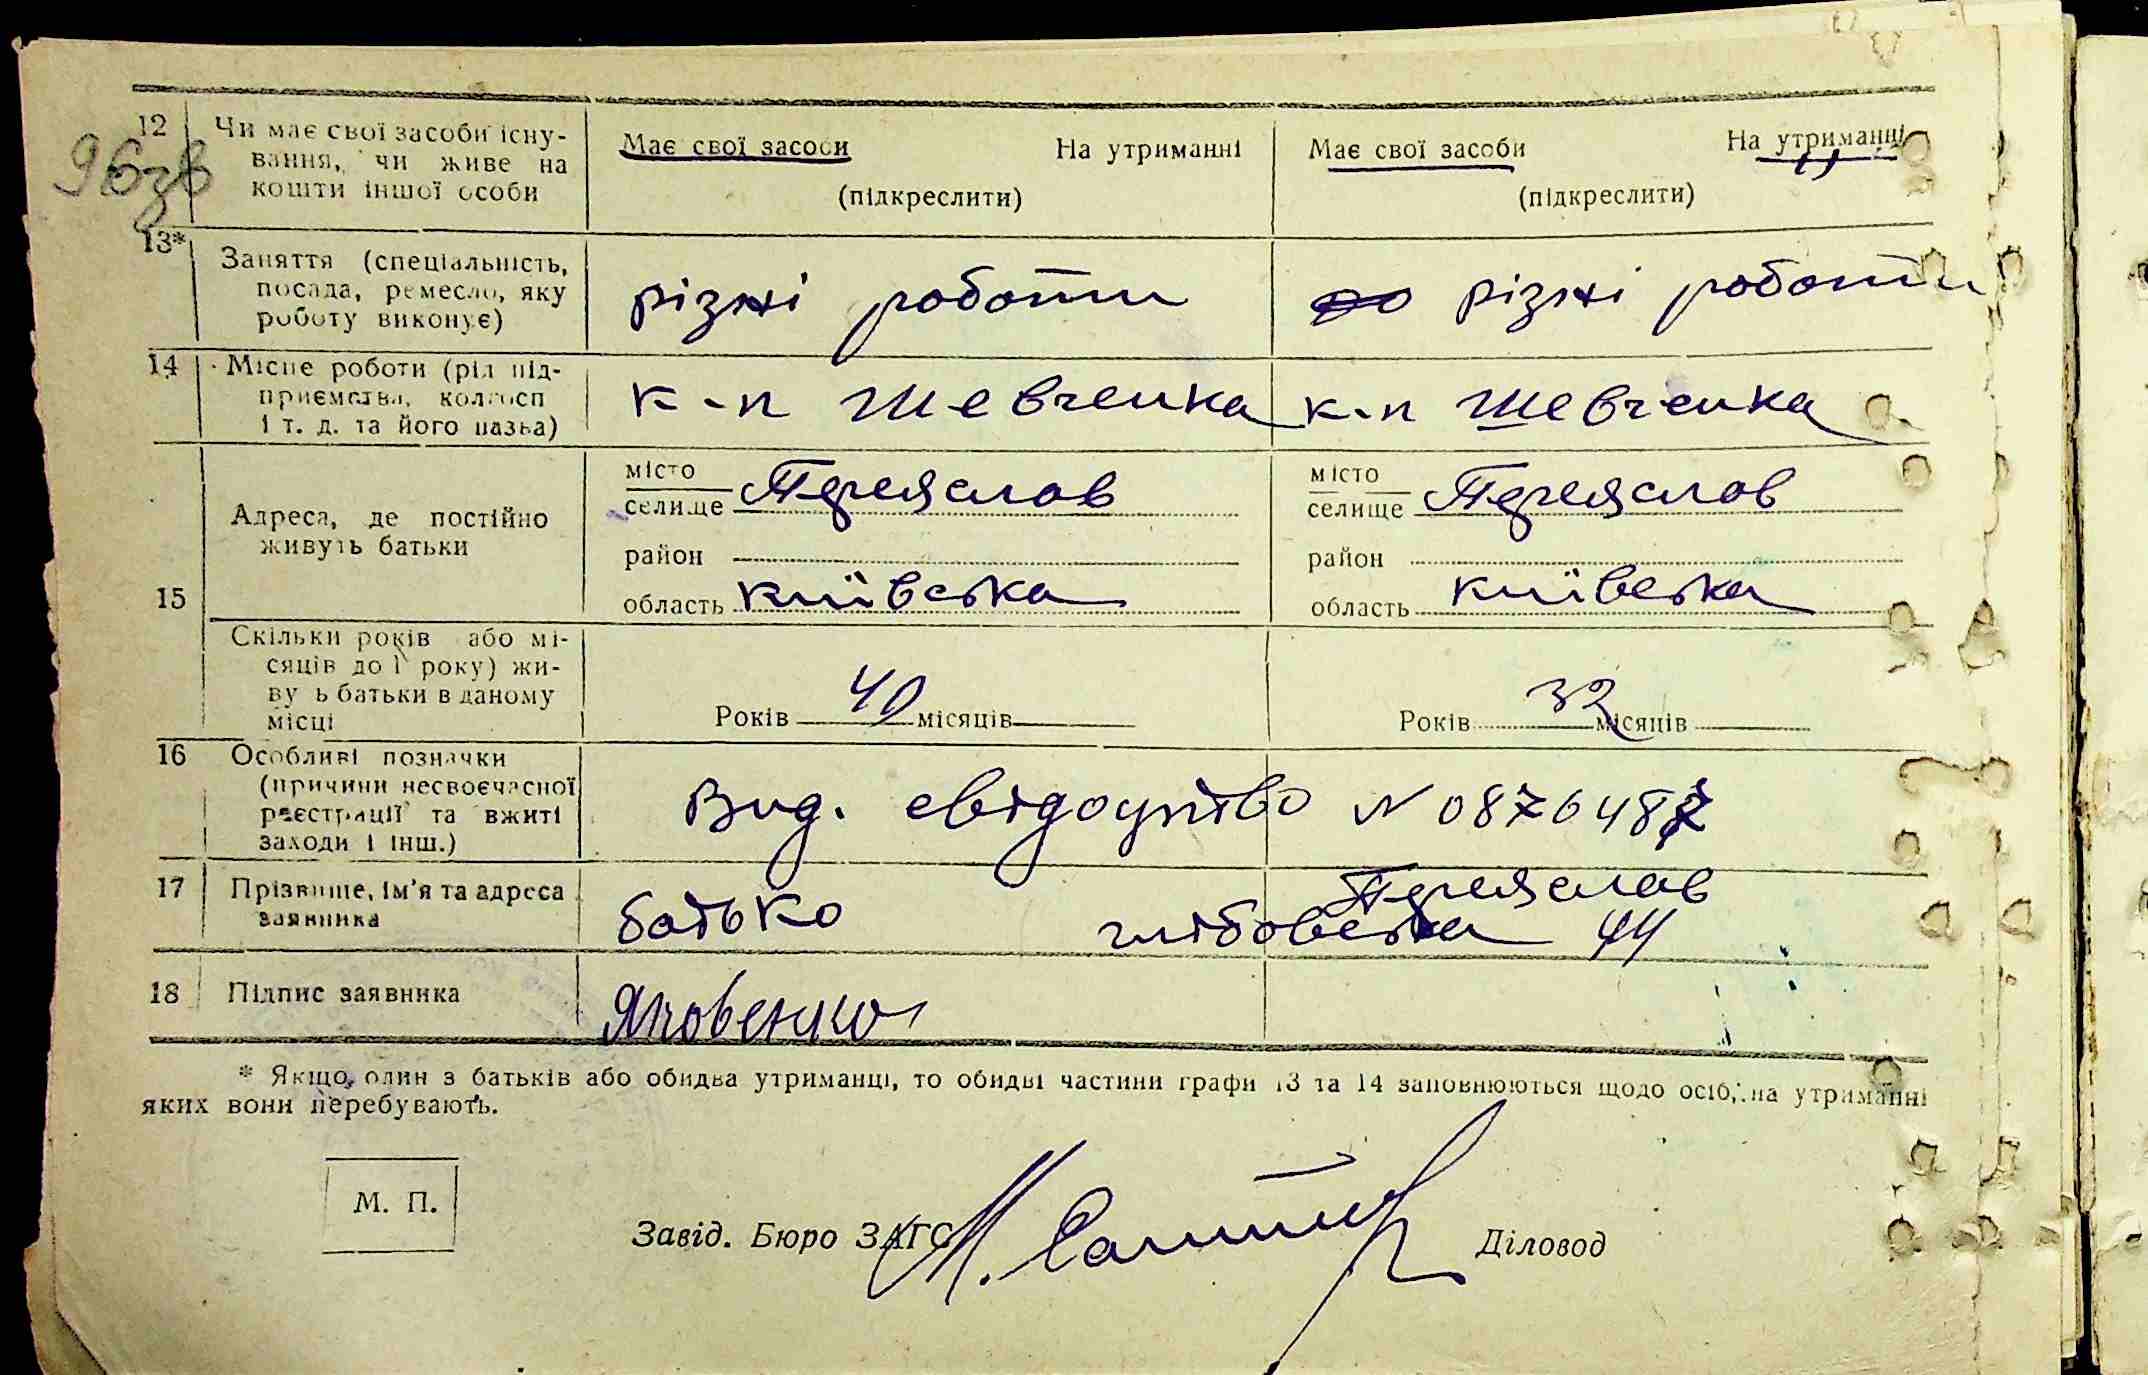 96зв
12 Чи має свої засоби існу-
вання, чи живе на
кошти іншої особи
Має свої засоби На утриманні
(підкреслити)
Має свої засоби На утриманні
(підкреслити)
13* Заняття (спеціальність,
посада, ремесло, яку
роботу виконує)
різні роботи
різні роботи
14 Місце роботи (рід під-
приємства, колгосп
і т. д. та його назва)
к-п Шевченка
к-п Шевченка
15
Адреса, де постійно
живуть батьки
місто
селище Переяслав
район
область київська
місто
селище Переяслав
район
область київська
Скільки років або мі-
сяців до 1 року) жи-
ву ь батьки в даному
місці
Років 40 місяців
Років 32 місяців
16 Особливі позначки
(причини несвоєчасної
реєстрації та вжиті
заходи і інш.)
Вид. свідоцтво N 0876487
17 Прізвище, ім'я та адреса
заявника
батько
Переяслав
44
18 Підпис заявника
Яковенко
* Якщо один з батьків або обидва утриманці, то обидві частини графи 13 та 14 заповнюються щодо осіб, на утриманні
яких вони перебувають.
М. П.
Завід. Бюро ЗАГС
Діловод